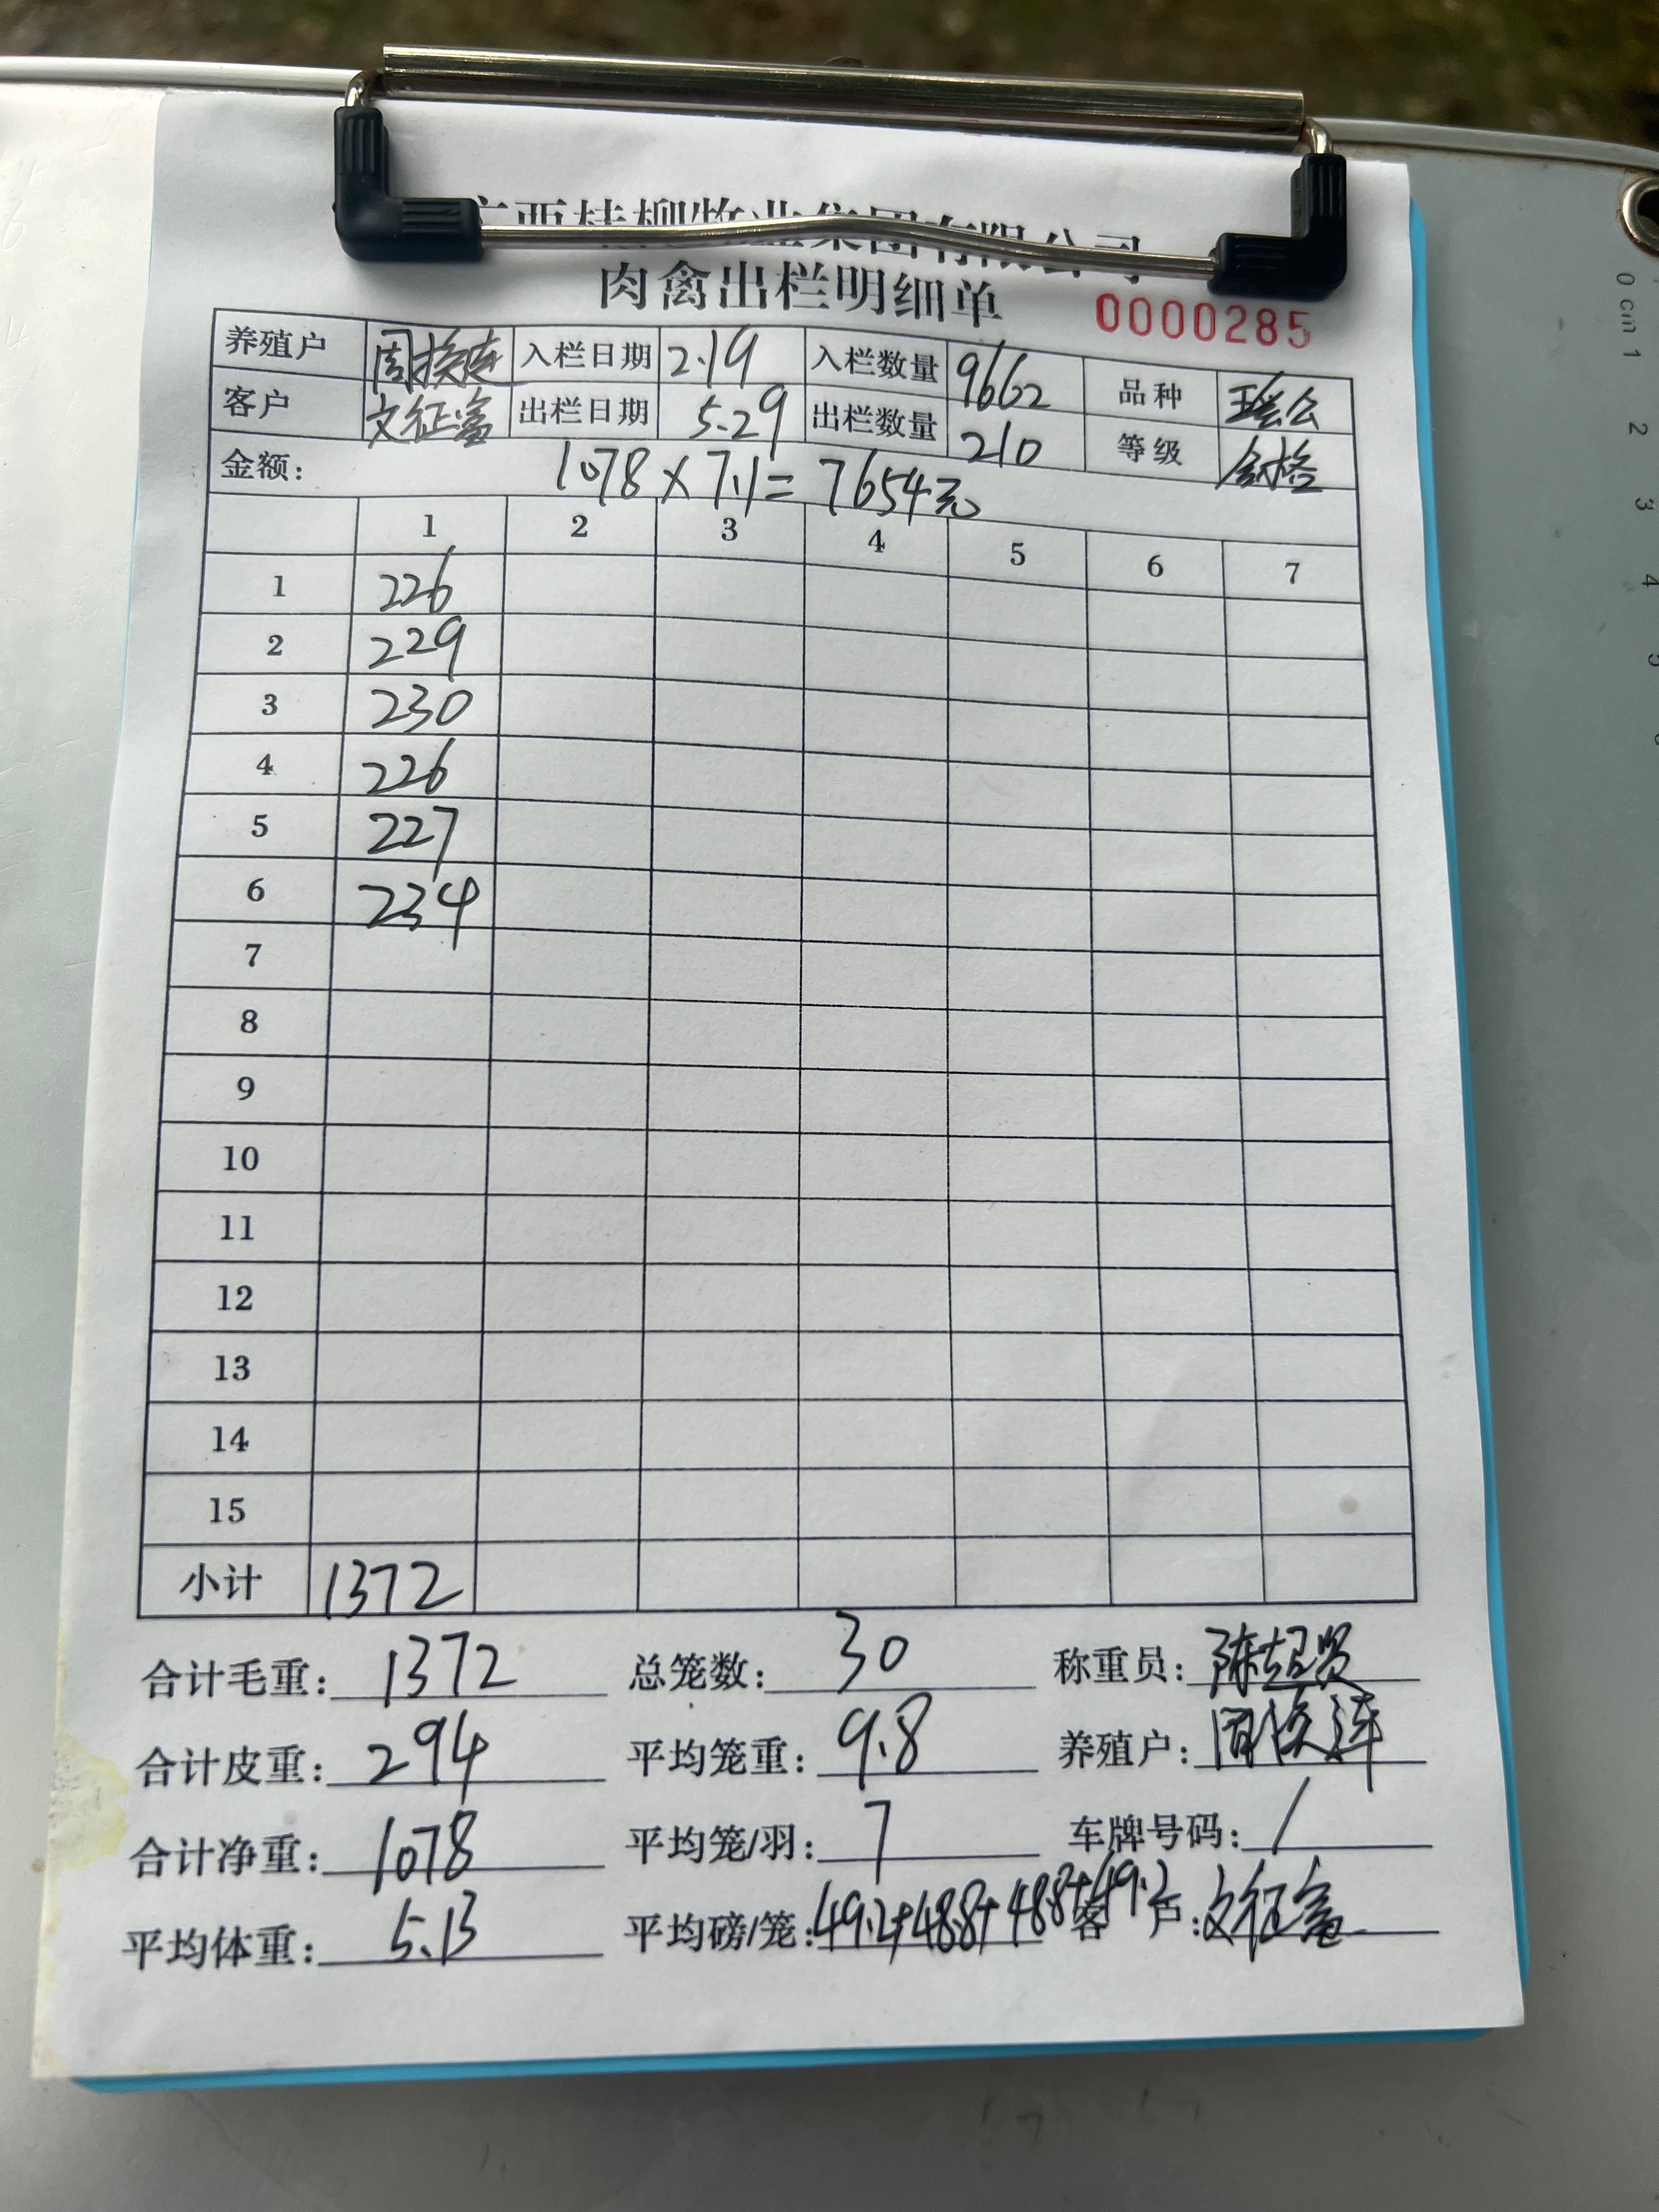 广西桂柳牧业集团有限公司
肉禽出栏明细单 0000285
养殖户 周换连 入栏日期 2.19 入栏数量 9662 品种
客户 文征富 出栏日期 5.29 出栏数量 210 等级 合格
金额: 1078×7.1=7654元
1 2 3 4 5 6 7
1 226
2 229
3 230
4 226
5 227
6 234
7
8
9
10
11
12
13
14
15
小计 1372
合计毛重: 1372 总笼数: 30 称重员:
合计皮重: 294 平均笼重: 9.8 养殖户: 周换连
合计净重: 1078 平均笼/羽: 7 车牌号码: /
平均体重: 5.13 平均磅/笼: 49.2+48.8+48.8+49.2 客 户: 文征富
0 cm 1 2 3 4 5